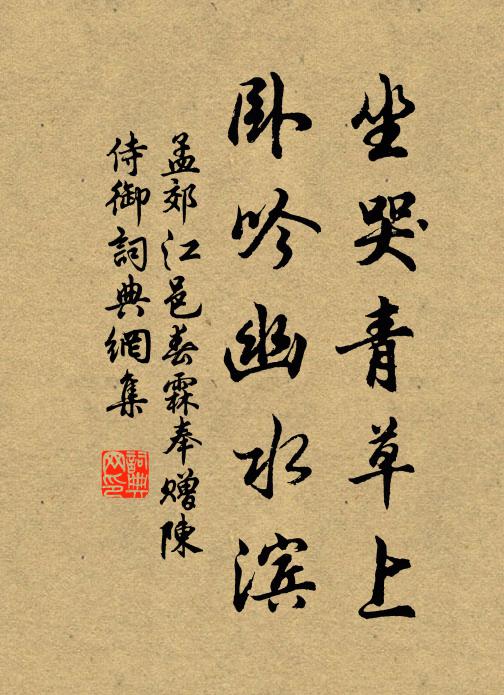 坐哭青草上
卧吟幽水滨
孟郊江邑春霖奉赠陳
侍御詞典網集
詞典网印